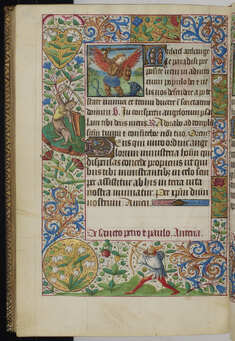 Michael archangele
paradisi pre
posite veni in adiuto
rium populo dei et ve
lis nos defendere a po
state inimici et tecum ducere i societatem
domini V. In conspectu angelorum psa
lam tibi deus meus R. Adorabo ad templu
sctm tuum et confitebor noi tuo Orem
Deus qui miro ordine ange
lorum ministeria hoim qz
dispensas concede propicius ut qui
bus tibi ministrantibus in celo sem
per assistitur ab his in terra vita
nostra muniatur Per xpm dnm
nostrum Amen
De sancto petro et paulo Antena